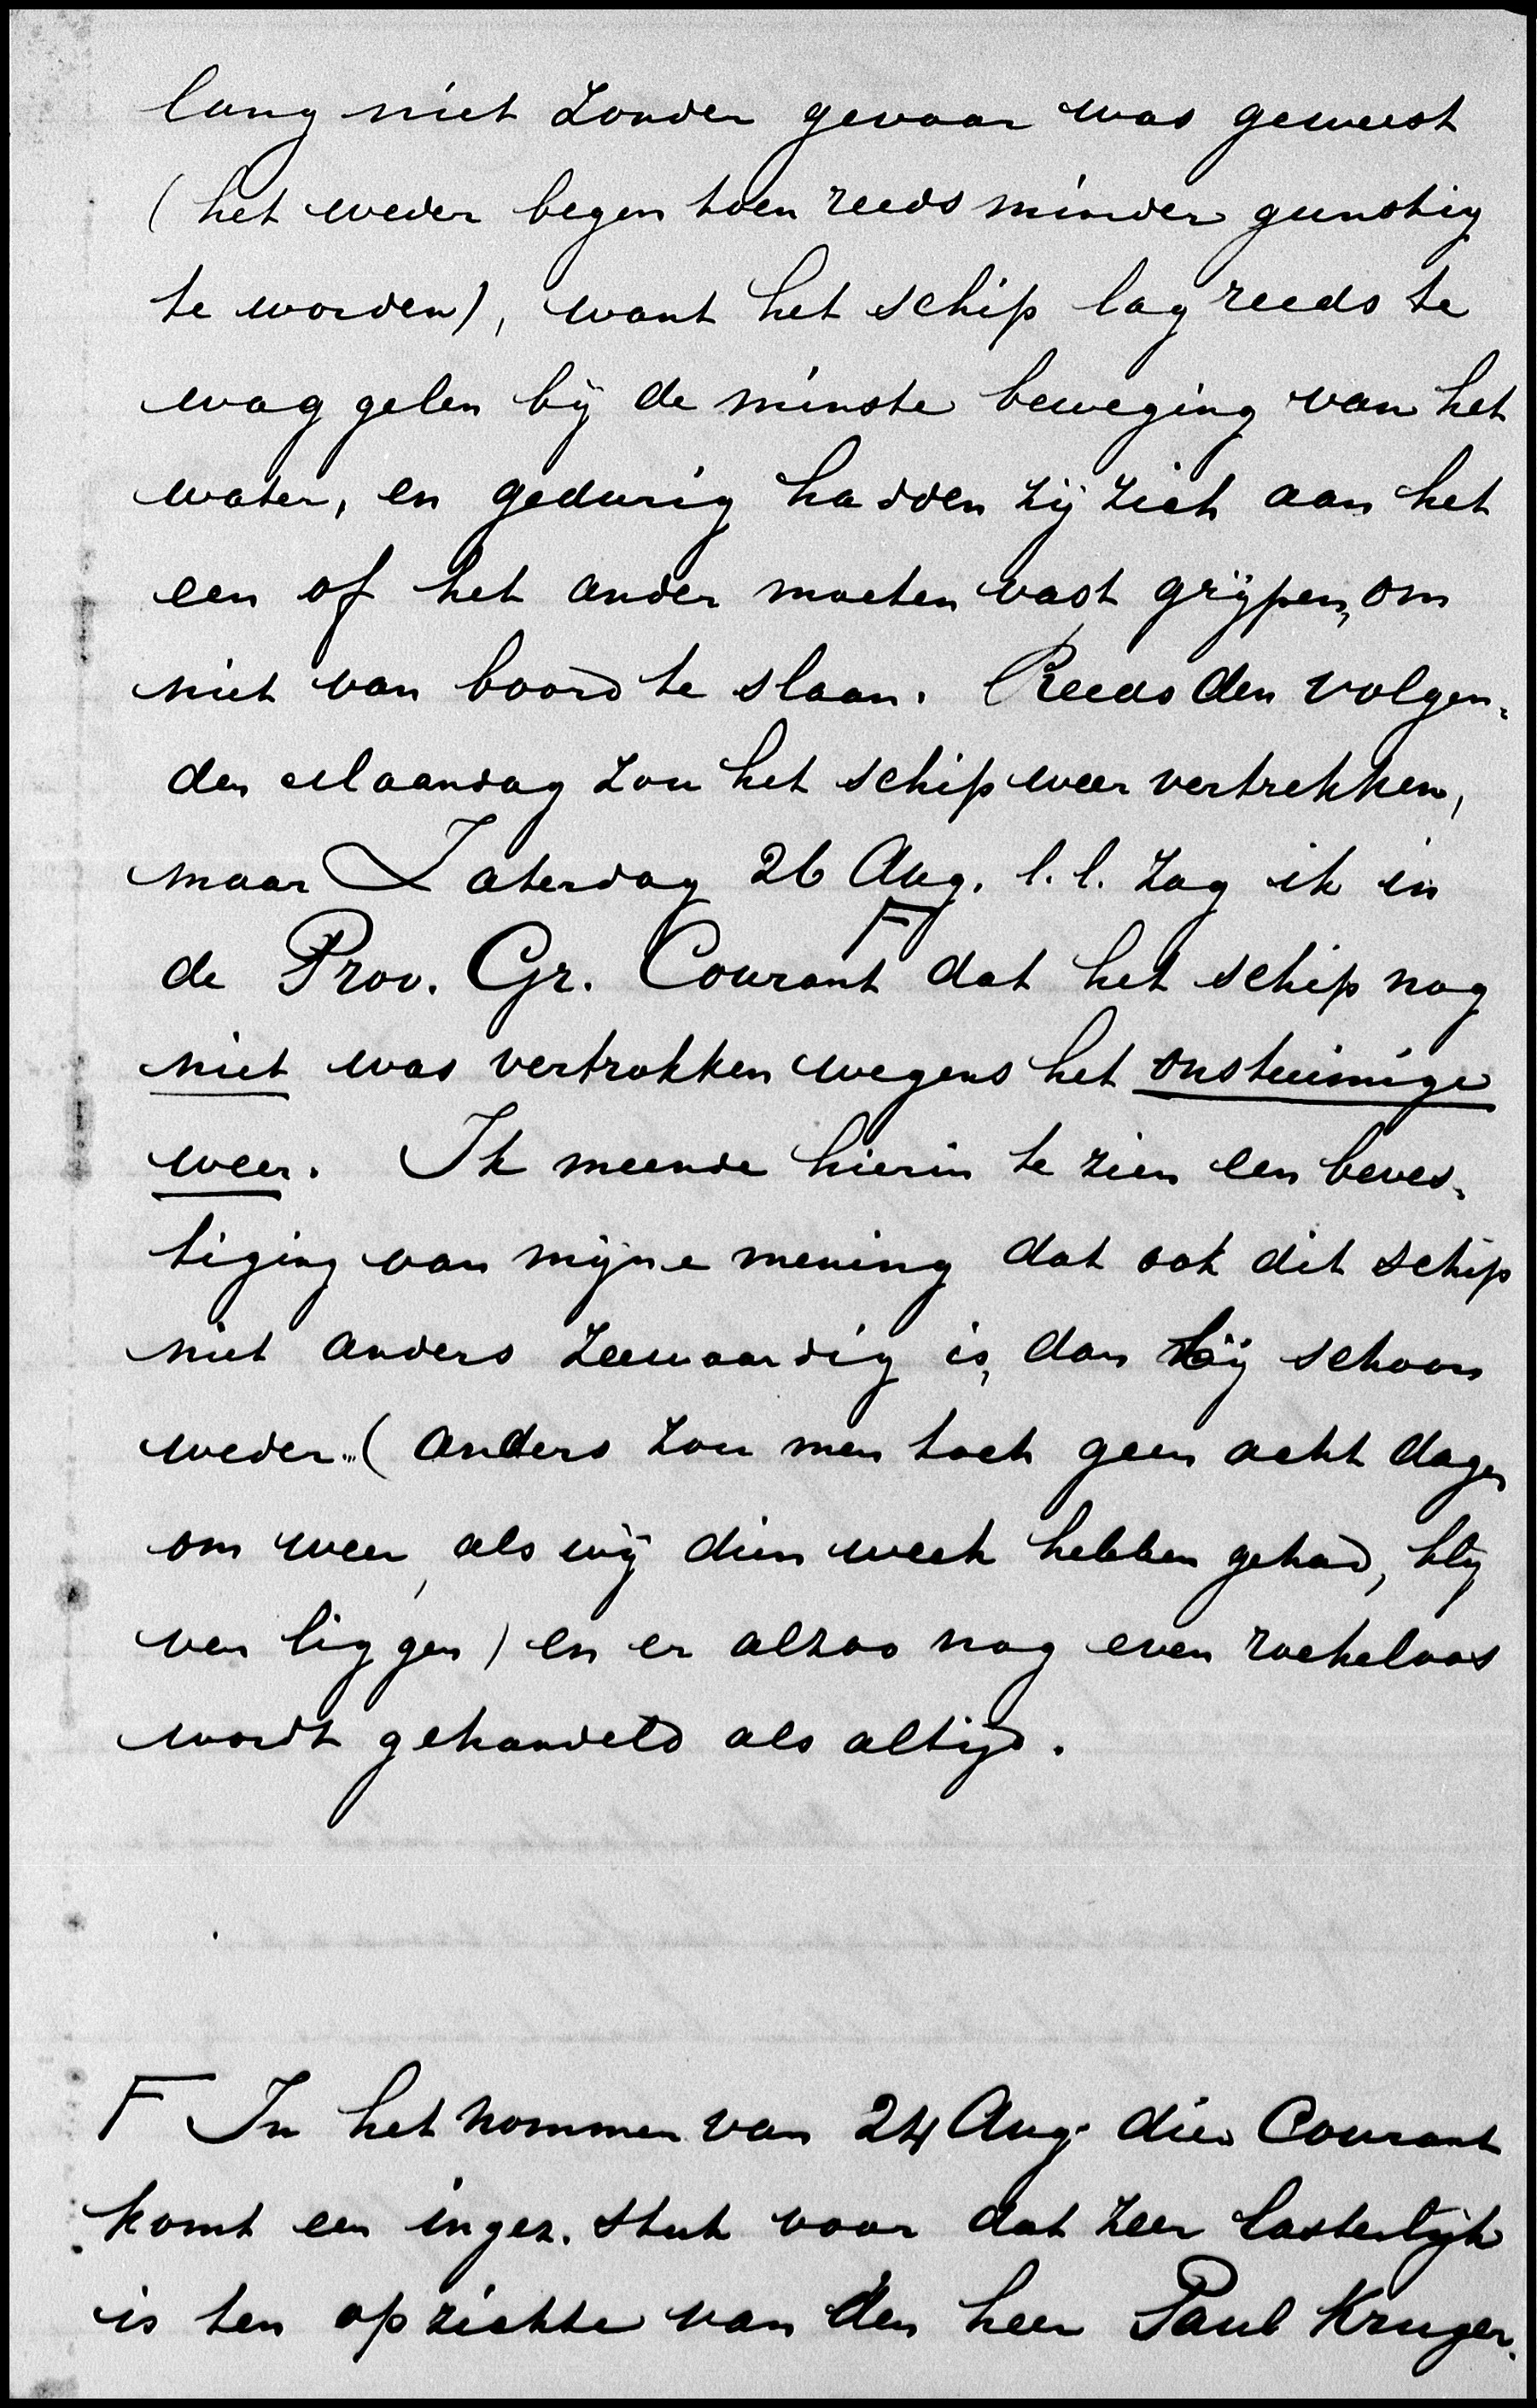 lang niet zonder gevaar was geweest
(het weder begon toen reeds minder gunstig
te worden), want het schip lag reeds te
waggelen bij de minste beweging van het
water, en gedurig hadden zij zich aan het
een of het ander moeten vast grijpen, om
niet van boord te slaan. Reeds den volgen-
den Maandag zou het schip weer vertrekken,
maar Zaterdag 26 Aug. l.l. zag ik in
de Prov. Gr. Courant F dat het schip nog
niet was vertrokken wegens het onstuimige
weer. Ik meende hierin te zien een beves-
tiging van mijne mening dat ook dit schip
niet anders zeewaardig is, dan bij schoon
weder (anders zou men toch geen acht dagen
om weer, als wij dien week hebben gehad, blij
ven liggen) en er alzoo nog even roekeloos
wordt gehandeld als altijd.
F In het nommer van 24 Aug. dier Courant
komt een ingez. stuk voor dat zeer lasterlijk
is ten opzichte van den heer Paul Kruger.